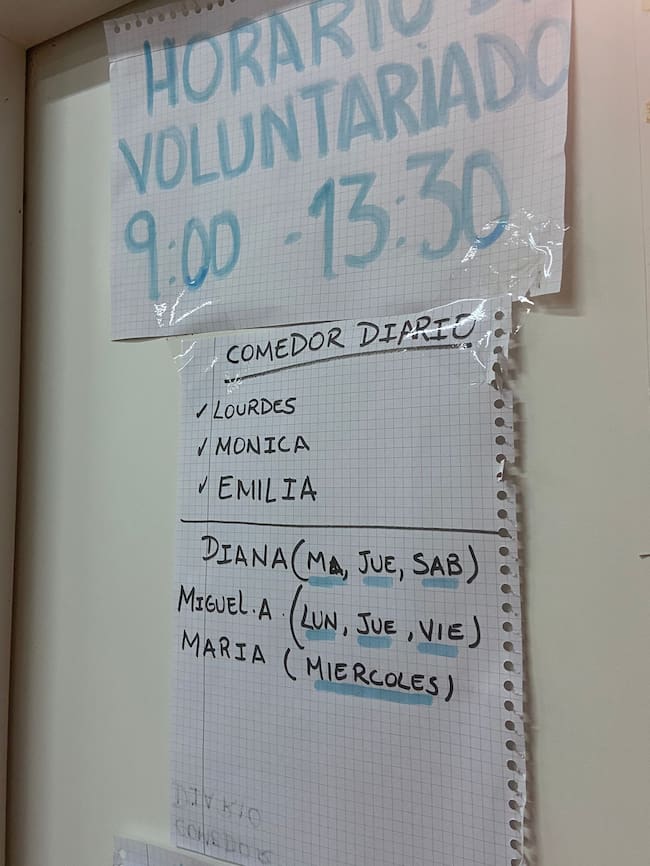 HORARIO
VOLUNTARIADO
9:00 - 13:30
COMEDOR DIARIO
✓ LOURDES
✓ MONICA
✓ EMILIA
DIANA (MA, JUE, SAB)
MIGUEL.A. (LUN, JUE, VIE)
MARIA (MIERCOLES)
DIARIO
COMEDOR